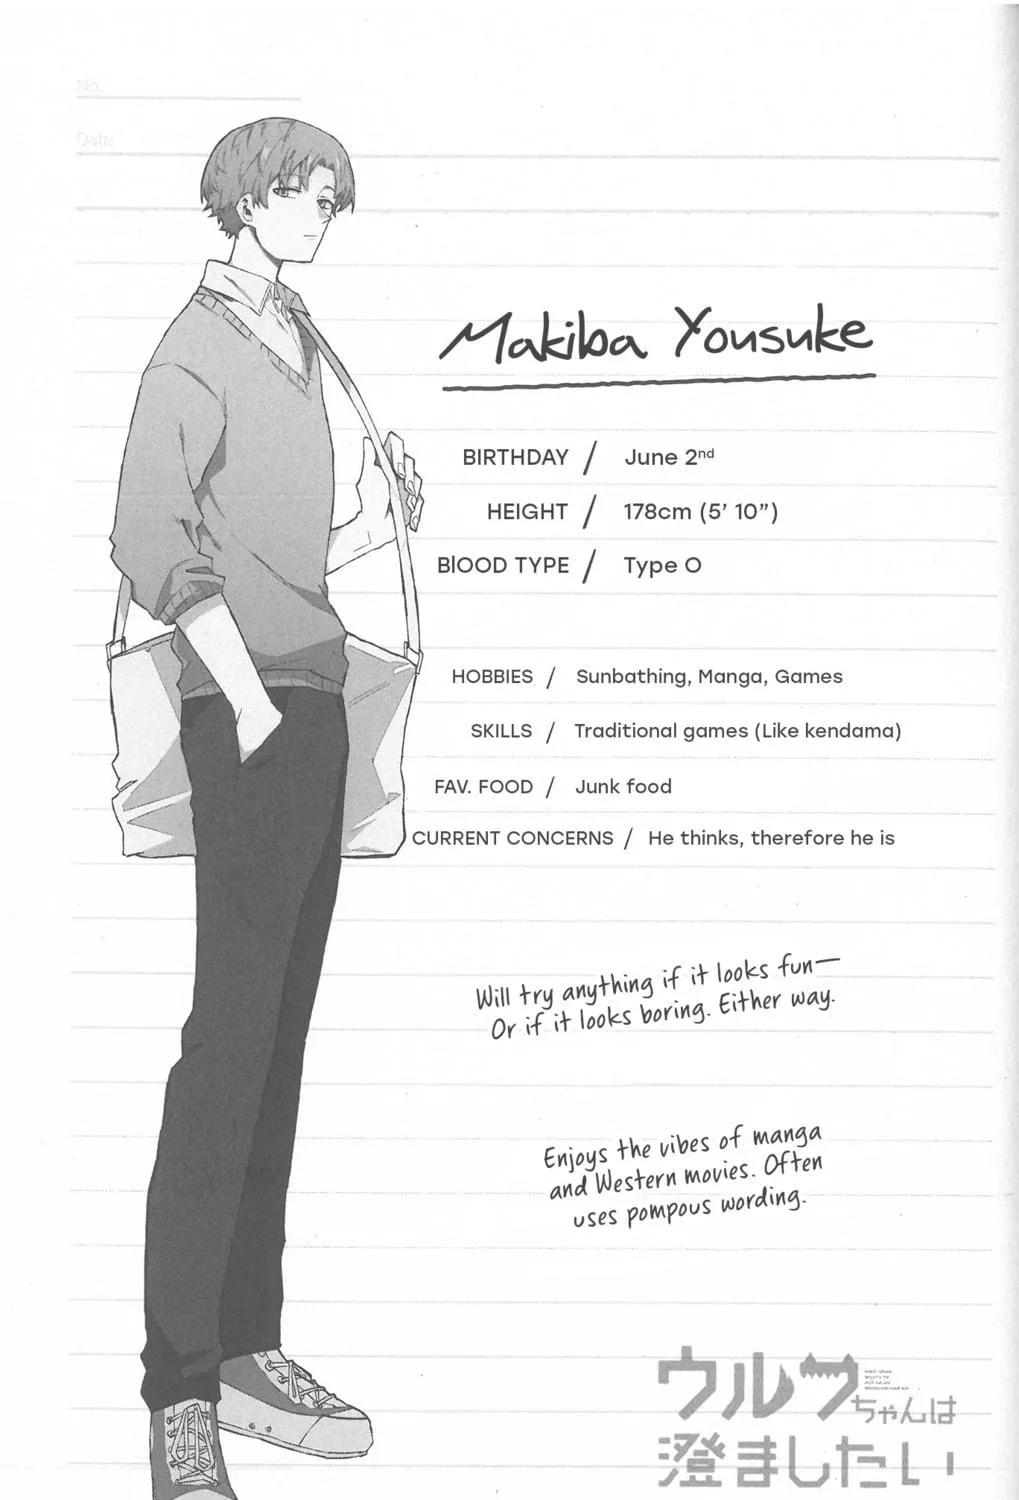 No.
Date
Makiba Yousuke
BIRTHDAY / June 2nd
HEIGHT / 178cm (5' 10")
BlOOD TYPE / Type O
HOBBIES / Sunbathing, Manga, Games
SKILLS / Traditional games (Like kendama)
FAV. FOOD / Junk food
CURRENT CONCERNS / He thinks, therefore he is
Will try anything if it looks fun—
Or if it looks boring. Either way.
Enjoys the vibes of manga
and Western movies. Often
uses pompous wording.
ウルフちゃんは
澄ましたい